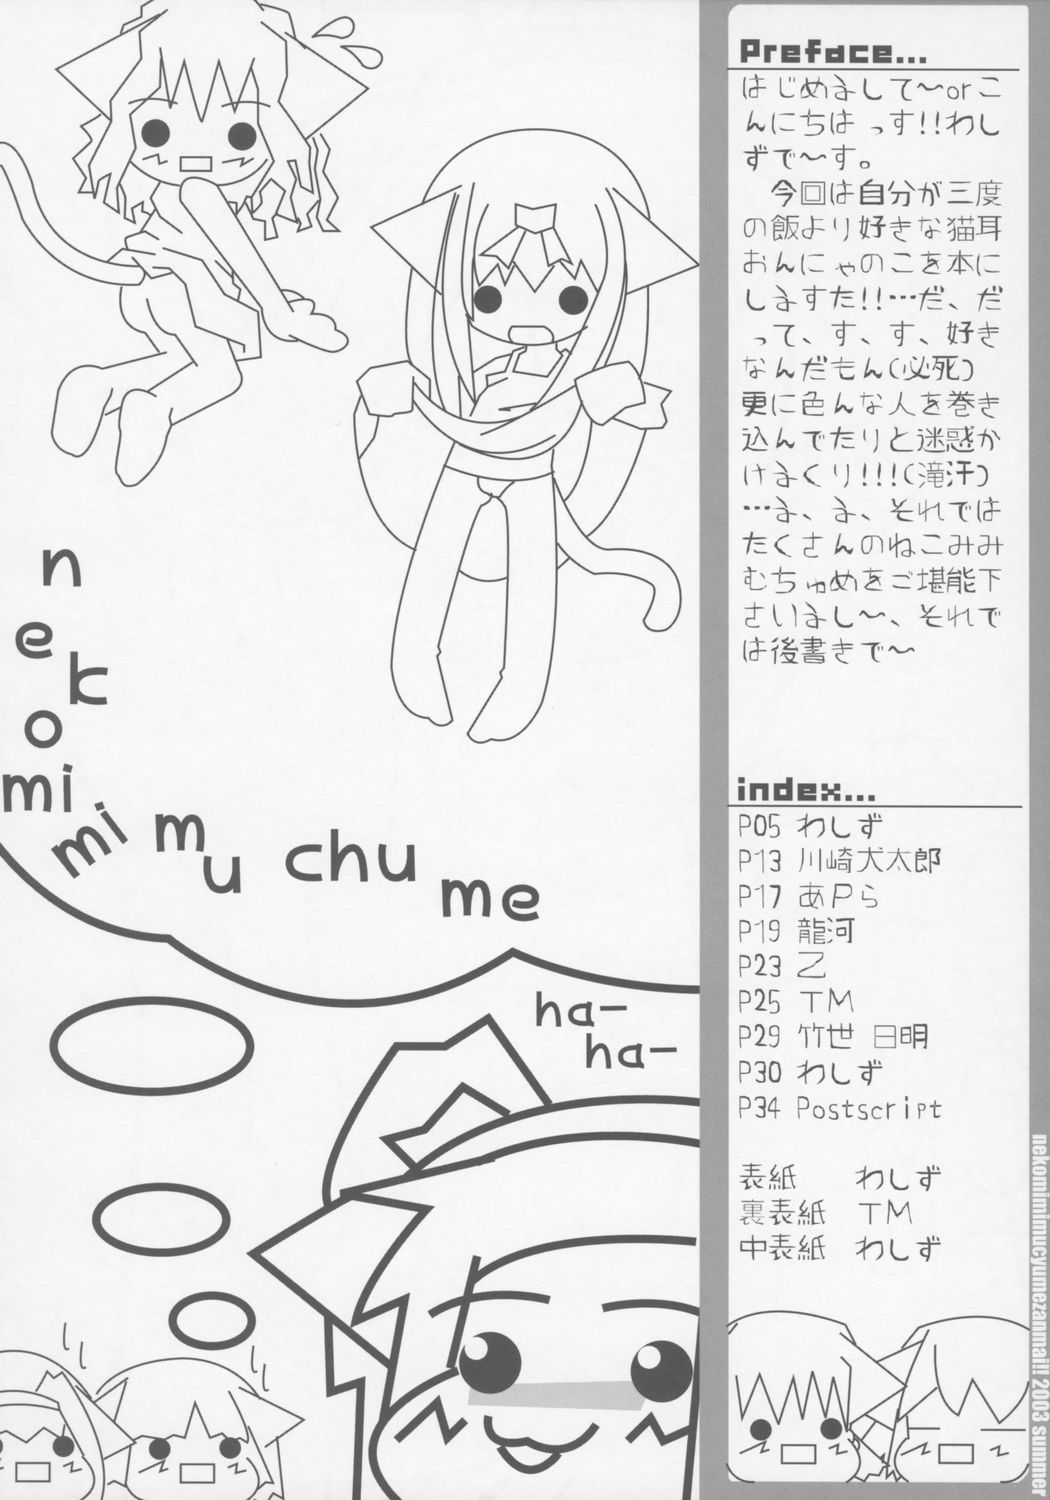 Preface...
はじめまして～orこ
んにちはっす!!わし
ずで～す。
　今回は自分が三度
の飯より好きな猫耳
おんにゃのこを本に
しますた!!…だ、だ
って、す、す、好き
なんだもん(必死)
更に色んな人を巻き
込んでたりと迷惑か
けまくり!!!(滝汗)
…ま、ま、それでは
たくさんのねこみみ
むちゅめをご堪能下
さいまし～、それで
は後書きで～
index...
P05 わしず
P13 川崎犬太郎
P17 あPら
P19 龍河
P23 乙
P25 TM
P29 竹世 日明
P30 わしず
P34 Postscript
表紙　　わしず
裏表紙　TM
中表紙　わしず
nekomimi mu chu me
ha-
ha-
nekomimimucyumezanmai!! 2003 summer